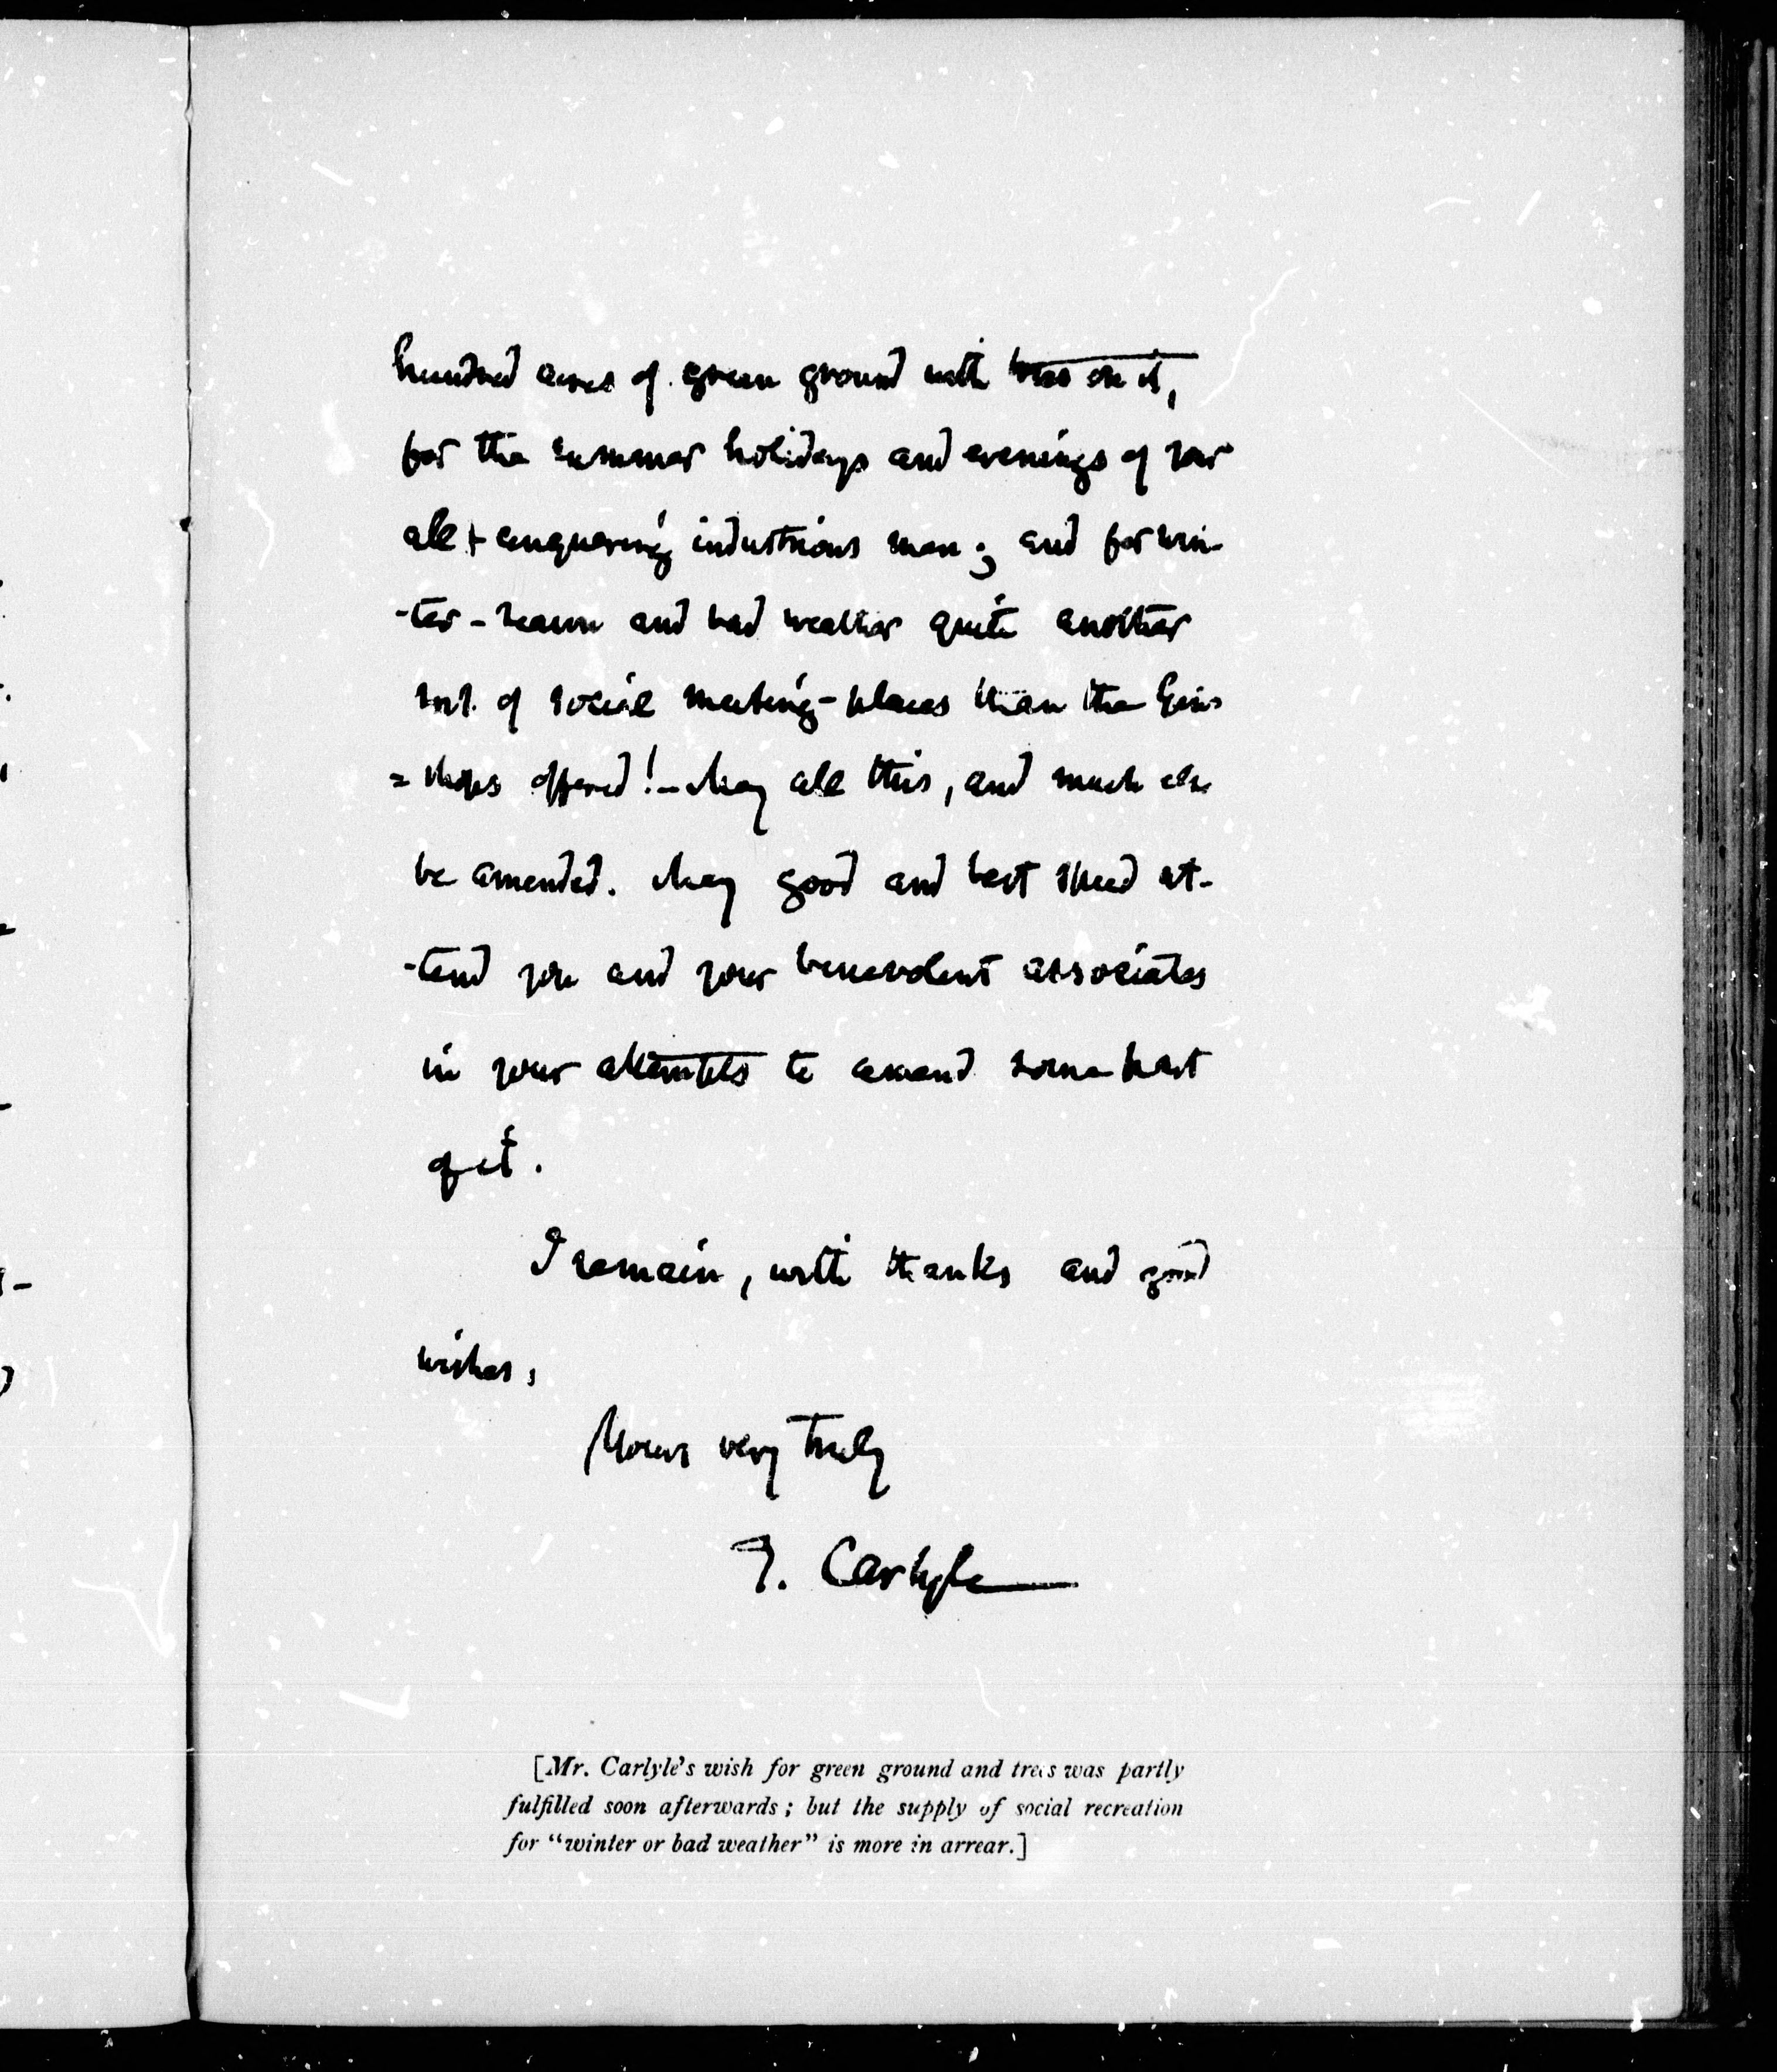 hundred acres of green ground with trees on it,
for the summer holidays and evenings of your
all-conquering industrious men; and for win-
-ter-season and bad weather quite another
sort of social meeting-places than the Gin-
=shops offered! – May all this, and much else
be amended. May good and best speed at-
-tend you and your benevolent associates
in your attempts to amend some part
of it.
I remain, with thanks and good
wishes,
Yours very truly
T. Carlyle
[Mr. Carlyle's wish for green ground and trees was partly
fulfilled soon afterwards; but the supply of social recreation
for "winter or bad weather" is more in arrear.]